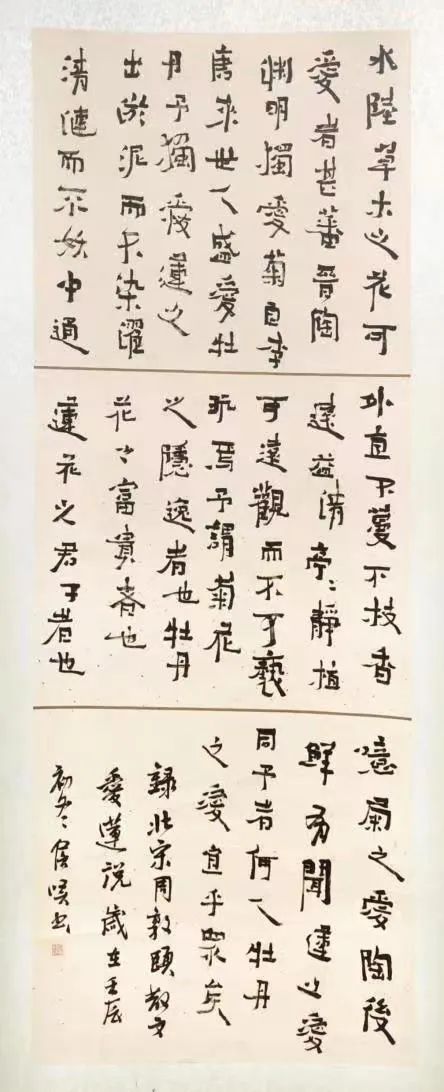 水陸草木之花可
愛者甚蕃晉陶
淵明獨愛菊自李
唐來世人盛愛牡
丹予獨愛蓮之
出淤泥而不染濯
清漣而不妖中通
外直不蔓不枝香
遠益清亭〻靜植
可遠觀而不可褻
玩焉予謂菊花
之隱逸者也牡丹
花之富貴者也
蓮花之君子者也
噫菊之愛陶後
鮮有聞蓮之愛
同予者何人牡丹
之愛宜乎眾矣
錄北宋周敦頤散文
愛蓮說歲在壬辰
初冬书